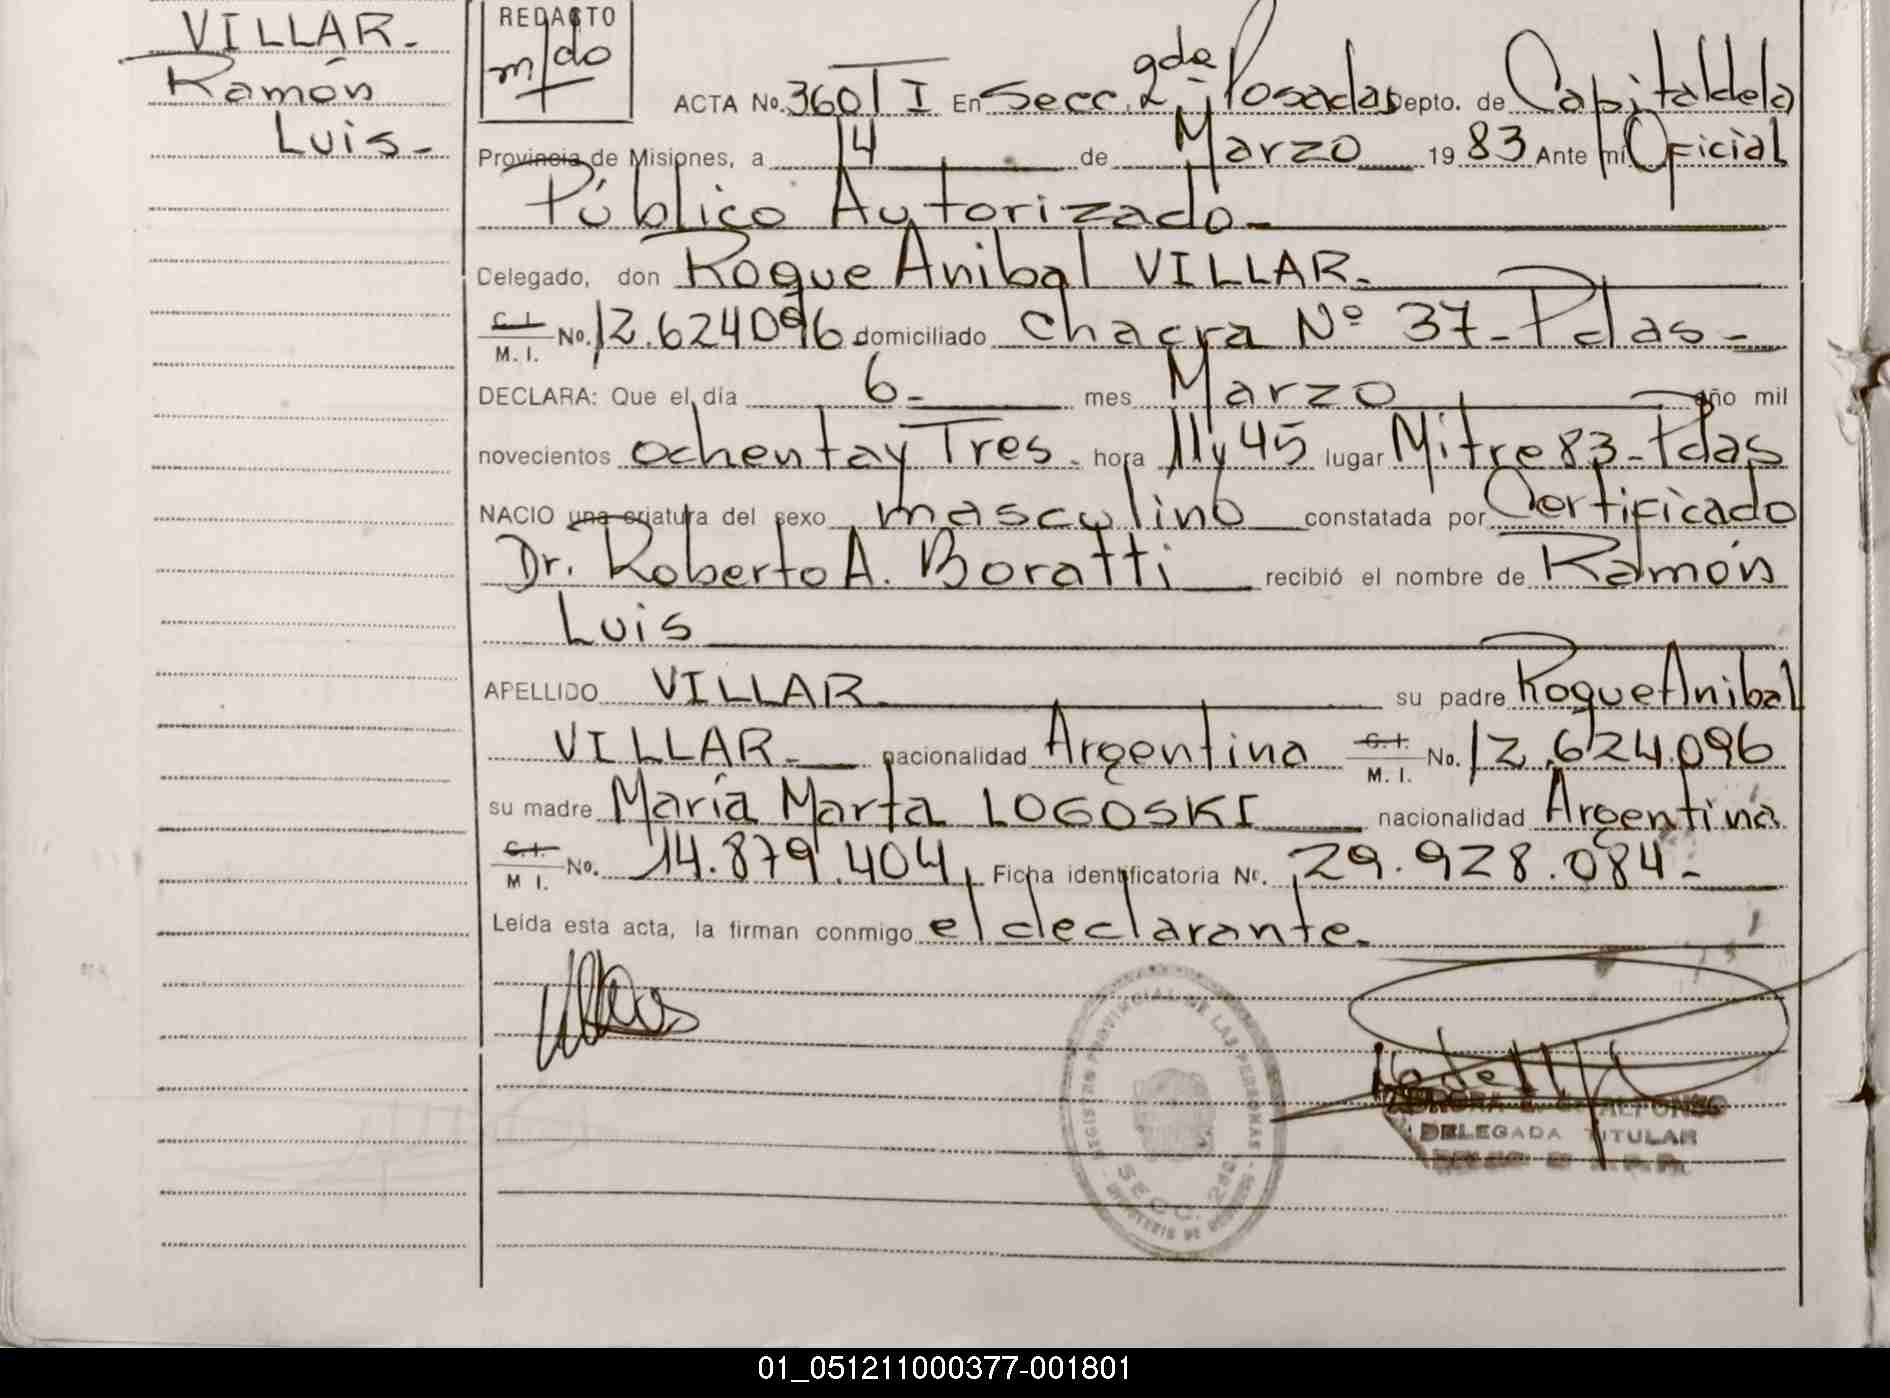 VILLAR.
Ramón
Luis-
REDACTO
m/do
ACTA No. 360 T I En Secc. 2ª gda Posadas Depto. de Capital de la
Provincia de Misiones, a 14 de Marzo 1983 Ante mí Oficial
Público Autorizado-
Delegado, don Roque Anibal VILLAR.
C. I. M. I. No. 12.624096 domiciliado Chacra Nº 37-Pdas-
DECLARA: Que el día 6- mes Marzo año mil
novecientos ochenta y Tres. hora 11 y 45 lugar Mitre 83-Pdas
NACIO una criatura del sexo masculino constatada por Certificado
Dr. Roberto A. Boratti recibió el nombre de Ramón
Luis
APELLIDO VILLAR su padre Roque Anibal
VILLAR.- nacionalidad Argentina C. I. M. I. No. 12.624.096
su madre María Marta LOGOSKI nacionalidad Argentina
C. I. M I. No. 14.879.404 Ficha identificatoria No. 29.928.084-
Leída esta acta, la firman conmigo el declarante.
REGISTRO PROVINCIAL DE LAS PERSONAS
SECC. 2da
ALFONSO
DELEGADA TITULAR
01_051211000377-001801